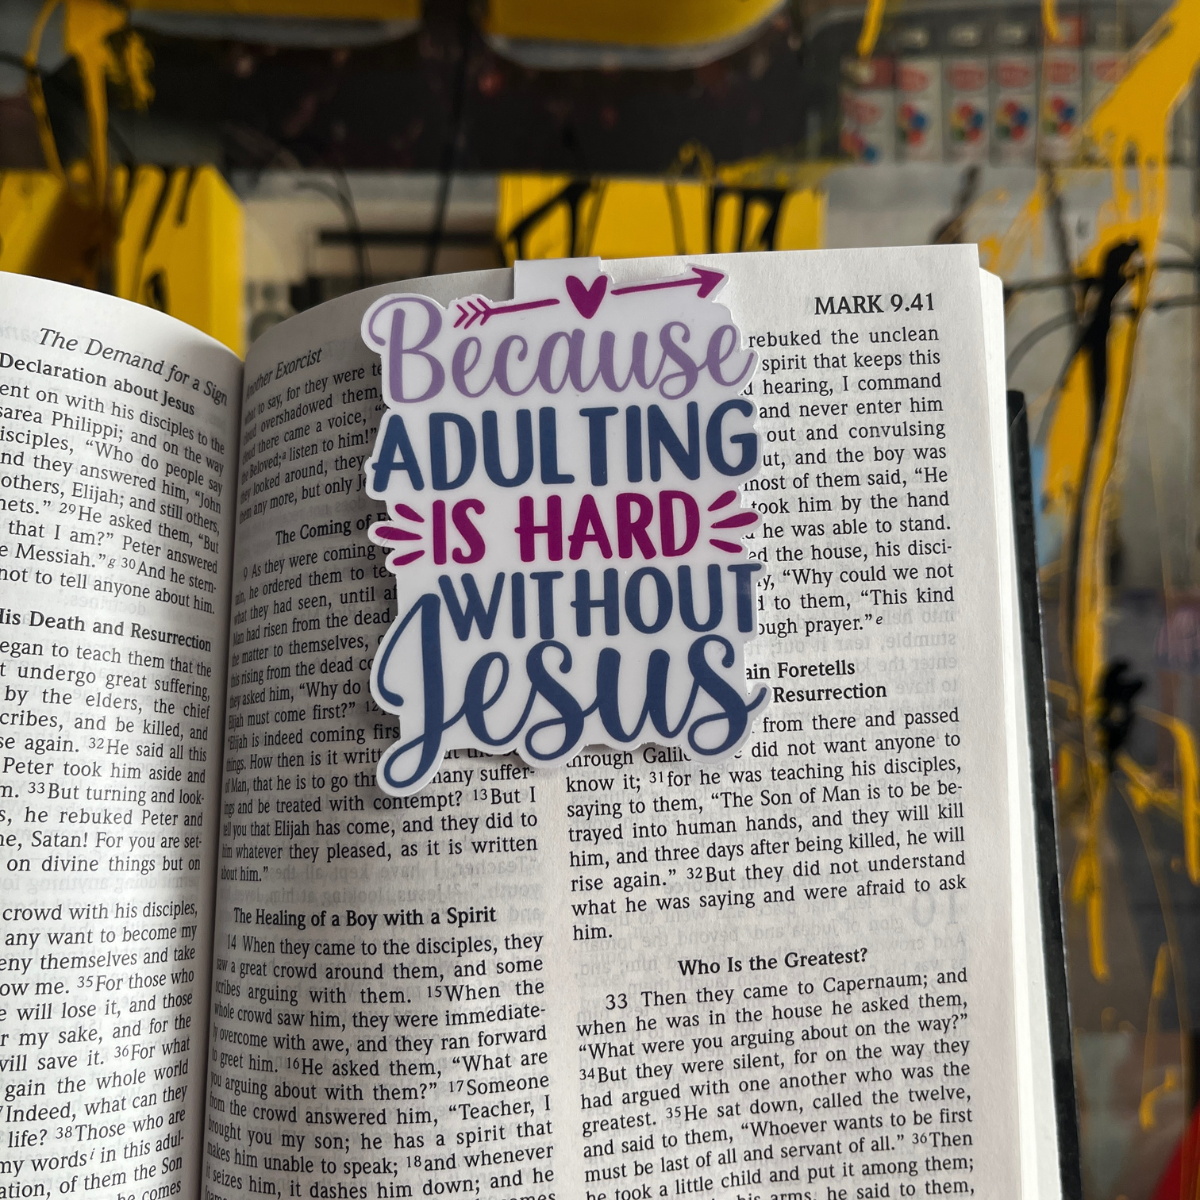 Because
ADULTING
IS HARD
WITHOUT
Jesus
The Demand for a Sign
Declaration about Jesus
ent on with his disciples to the
sarea Philippi; and on the way
isciples, “Who do people say
nd they answered him, “John
others, Elijah; and still others,
hets.” 29He asked them, “But
that I am?” Peter answered
e Messiah.”g 30And he stern-
not to tell anyone about him.
His Death and Resurrection
egan to teach them that the
t undergo great suffering,
by the elders, the chief
cribes, and be killed, and
se again. 32He said all this
Peter took him aside and
m. 33But turning and look-
s, he rebuked Peter and
ne, Satan! For you are set-
on divine things but on
crowd with his disciples,
any want to become my
eny themselves and take
ow me. 35For those who
e will lose it, and those
r my sake, and for the
will save it. 36For what
gain the whole world
Indeed, what can they
life? 38Those who are
my wordsi in this adul-
ation, of them the Son
he comes
Another Exorcist
to say, for they were te
overshadowed them,
there came a voice, “
the Beloved;a listen to him!”
they looked around, they
them any more, but only Je
The Coming of E
9 As they were coming
he ordered them to te
what they had seen, until af
Man had risen from the dead
the matter to themselves,
this rising from the dead co
they asked him, “Why do
Elijah must come first?” 12
“Elijah is indeed coming firs
things. How then is it writt
of Man, that he is to go th many suffer-
ings and be treated with contempt? 13But I
tell you that Elijah has come, and they did to
him whatever they pleased, as it is written
about him.”
The Healing of a Boy with a Spirit
14 When they came to the disciples, they
saw a great crowd around them, and some
scribes arguing with them. 15When the
whole crowd saw him, they were immediate-
ly overcome with awe, and they ran forward
to greet him. 16He asked them, “What are
you arguing about with them?” 17Someone
from the crowd answered him, “Teacher, I
brought you my son; he has a spirit that
makes him unable to speak; 18and whenever
it seizes him, it dashes him down; and he
MARK 9.41
rebuked the unclean
spirit that keeps this
hearing, I command
and never enter him
out and convulsing
ut, and the boy was
most of them said, “He
took him by the hand
he was able to stand.
ed the house, his disci-
y, “Why could we not
to them, “This kind
ough prayer.”e
ain Foretells
Resurrection
from there and passed
through Galile did not want anyone to
know it; 31for he was teaching his disciples,
saying to them, “The Son of Man is to be be-
trayed into human hands, and they will kill
him, and three days after being killed, he will
rise again.” 32But they did not understand
what he was saying and were afraid to ask
him.
Who Is the Greatest?
33 Then they came to Capernaum; and
when he was in the house he asked them,
“What were you arguing about on the way?”
34But they were silent, for on the way they
had argued with one another who was the
greatest. 35He sat down, called the twelve,
and said to them, “Whoever wants to be first
must be last of all and servant of all.” 36Then
he took a little child and put it among them;
his arms, he said to them,